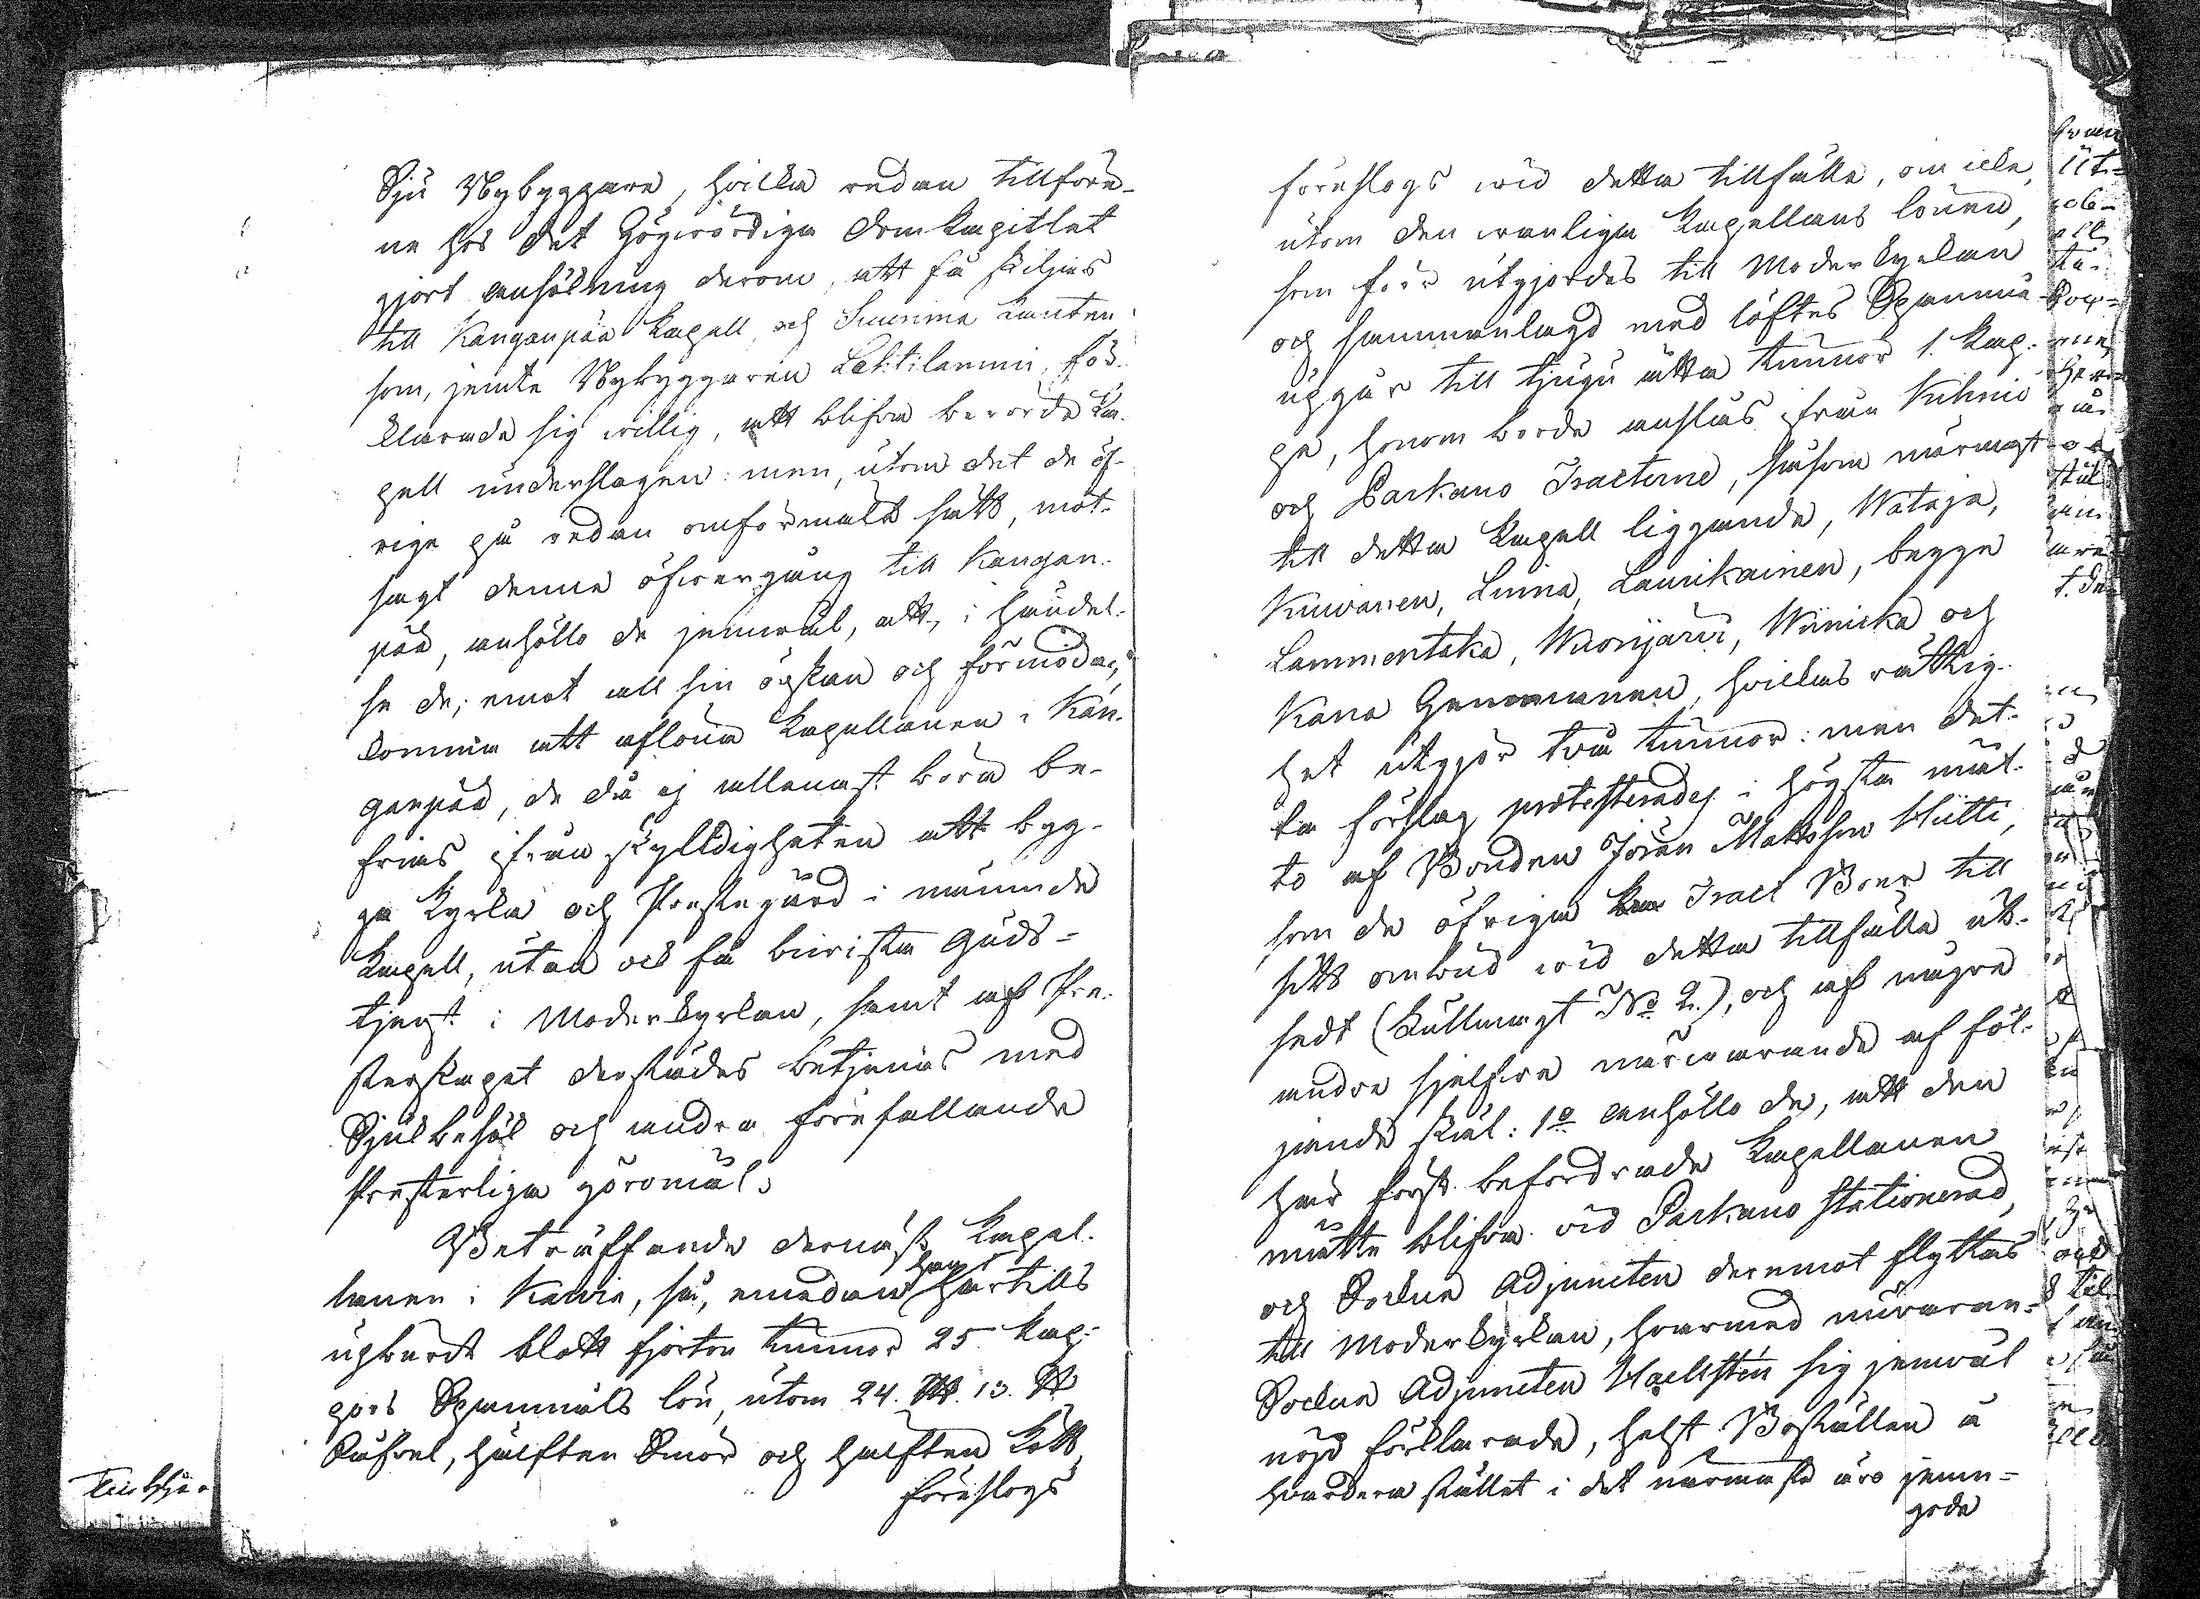 Sju Nybyggare, hvilka redan tillföre-
ne hos det Högwördiga Domkapitlet
gjort anhållning derom, att få skiljas
till Kanganpää Kapell, och Summa kunten
som, jemte Nybyggaren Lahtilammi, för-
klarade sig willig, att blifwa berörde Ka-
pell underslagen: men, utom det de öf-
rige på redan omförmäldt sätt, mot-
sagt denna öfwergång till Kangan-
pää, anhöllo de jemwäl, att, i händel-
se de, emot all sin önskan och förmodan,
komma att aflöna Kapellanen i Kan-
ganpää, de då ej allenast böra be-
frias ifrån skylldigheten att byg-
ga Kyrka och Prestegård i nämnde
Kapell, utan ock få bewista Guds-
tjenst i Moderkyrkan, samt af Pre-
sterskapet derstädes betjenas med
Själbehof och andra förefallande
Presterliga göromål.
Beträffande dernäst Kapel-
lanen i Kawia, så, emedan han härtills
upburit blott fjorton tunnor 25 kap-
pors Spannmåls lön, utom 24. ℔. 13. ℔
Såfwel, hälften Smör och hälften Kött,
föreslogs
föreslogs wid detta tillfälle, om icke,
utom den wanliga Kapellans lönen,
som förr utgjordes till Moderkyrkan
och sammanlagd med löftes Spannmå-
uppgår till tjugu åtta tunnor 1. kap-
pe, honom borde anslås ifrån Kihniö
och Parkano Tracterne, såsom närmast
till detta Kapell liggande, Wataja,
Kuivanen, Luina, Laurikainen, begge
Lammentaka, Wuorijärvi, Wiinicka och
Kana Hemmanen, hvilkas rättig-
het utgör två tunnor: men det-
ta förslag protesterades i högsta måt-
to af Bonden Jöran Mattsson Hütti,
som de öfriga Tract Boer till
sitt ombud wid detta tillfälle ut-
sedt (Fullmagt No 2.), och af några
andra sjelfwa närwarande af föl-
jande skäl: 1o anhöllo de, att den
här först befordrade Kapellanen
måtte blifwa wid Parkano stationerad,
och Sockne Adjuncten deremot flyttas
till Moderkyrkan, hvarmed närwaran-
Sockne Adjuncten Hællstén sig jemwäl
nöjd förklarade, helst Boställen å
hvardera stället i det närmaste äro jemn-
goda